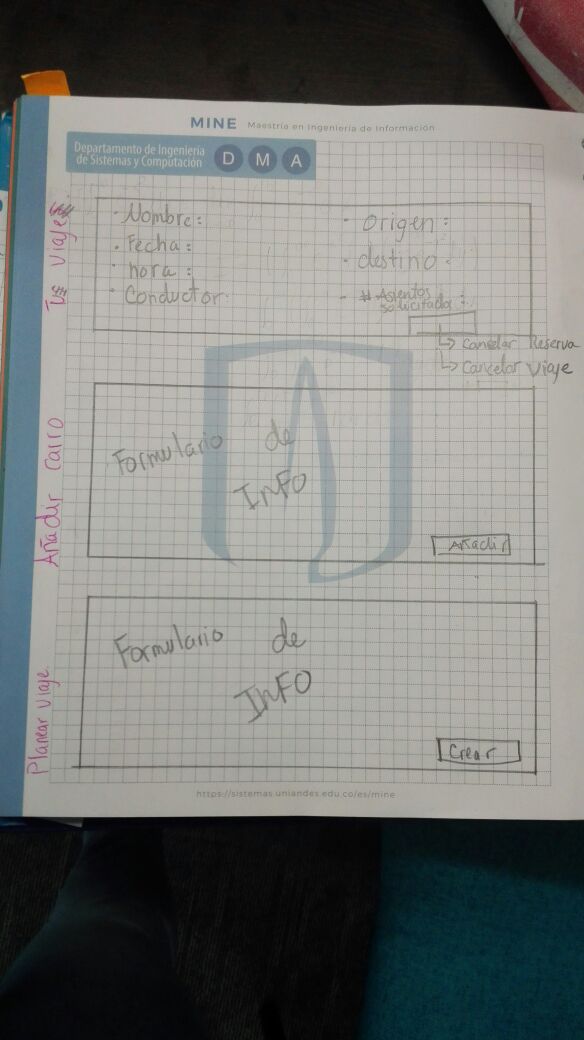 MINE Maestría en Ingeniería de Información
Departamento de Ingeniería
de Sistemas y Computación
D M A
Viajes
· Nombre :
· Fecha :
· hora :
· Conductor :
· origen :
· destino :
· # Asientos
solicitada :
↳ Cancelar Reserva
↳ Cancelar Viaje
Añadir carro
Formulario de
INFO
Añadir
Planear Viaje
Formulario de
INFO
Crear
https://sistemas.uniandes.edu.co/es/mine